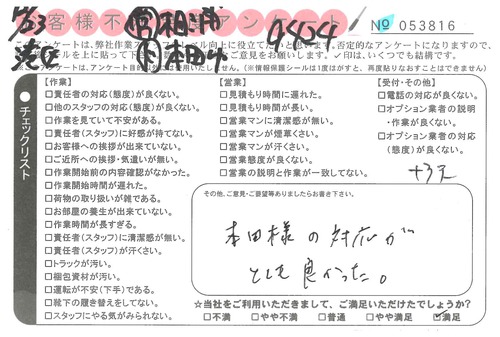 お客様不満足アンケート
No 053816
9404
このアンケートは、弊社作業スタッフのレベル向上に役立てたいと思います。否定的なアンケートになりますので、
シールを上に貼って下さい。お願いします。✓印は、いくつでも結構です。
【作業】
□責任者の対応(態度)が良くない。
□他のスタッフの対応(態度)が良くない。
□作業を見ていて不安がある。
□責任者(スタッフ)に好感が持てない。
□お客様への挨拶が出来ていない。
□ご近所への挨拶・気遣いが無い。
□作業開始前の内容確認がなかった。
□作業開始時間が遅れた。
□荷物の取り扱いが雑である。
□お部屋の養生が出来ていない。
□作業時間が長すぎる。
□責任者(スタッフ)に清潔感が無い。
□責任者(スタッフ)が汗くさい。
□トラックが汚い。
□梱包資材が汚い。
□運転が不安(下手)である。
□靴下の履き替えをしてない。
□スタッフにやる気がみられない。
【営業】
□見積もり時間に遅れた。
□見積もり時間が長い。
□営業マンに清潔感が無い。
□営業マンが煙草くさい。
□営業マンが汗くさい。
□営業態度が良くない。
□営業の説明と作業が一致してない。
【受付・その他】
□電話の対応が良くない。
□オプション業者の説明
・作業が良くない。
□オプション業者の対応
(態度)が良くない。
チェックリスト
その他、ご意見・ご要望等ありましたらお書き下さい。
本田様の対応が
とても良かった。
☆当社をご利用いただきまして、ご満足いただけたでしょうか?
□不満 □やや不満 □普通 □やや満足 ☑満足